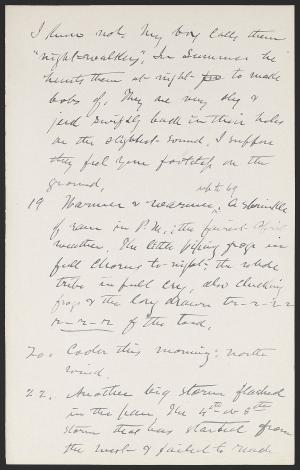 I know not. My boy calls them
"night-walkers". In Summer he
hunts them at night to make
bobs of. They are very shy &
jerk swiftly back in their holes
on the slightest sound. I suppose
they feel your footstep on the
ground.
up to 69
19 Warmer & warmer, A sprinkle
of rain in P.M.; the finest April
weather. The little piping frogs in
full chorus to-night; the whole
tribe in full cry, also clucking
frogs & the long drawn tr-r-r-r
r-r-r-r of the toad.
20. Cooler this morning; north
wind.
22. Another big storm flashed
in the pan. The 4th or 5th
storm that has started from
the west & failed to reach